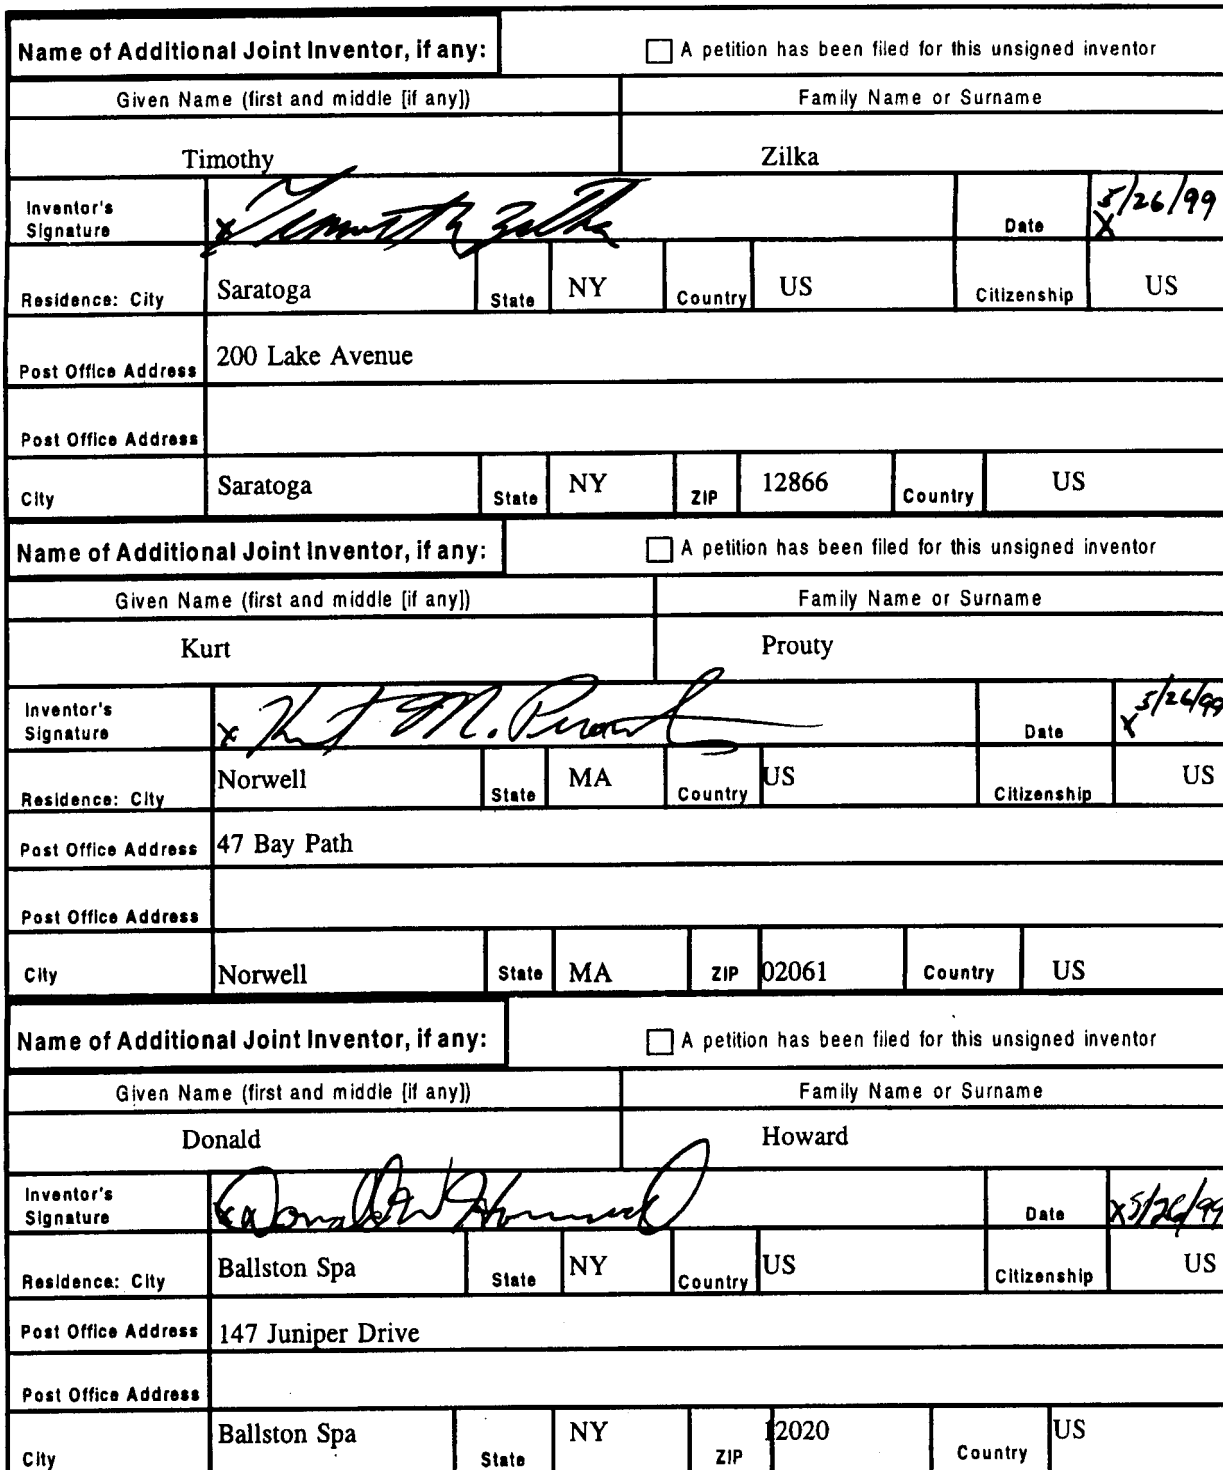 Name of Additional Joint Inventor, if any: A petition has been filed for this unsigned inventor
Given Name (first and middle [if any]) Family Name or Surname
Timothy Zilka
Inventor's Signature x Timothy Zilka Date x 5/26/99
Residence: City Saratoga State NY Country US Citizenship US
Post Office Address 200 Lake Avenue
Post Office Address
City Saratoga State NY ZIP 12866 Country US
Name of Additional Joint Inventor, if any: A petition has been filed for this unsigned inventor
Given Name (first and middle [if any]) Family Name or Surname
Kurt Prouty
Inventor's Signature x Kurt M. Prouty Date x 5/26/99
Residence: City Norwell State MA Country US Citizenship US
Post Office Address 47 Bay Path
Post Office Address
City Norwell State MA ZIP 02061 Country US
Name of Additional Joint Inventor, if any: A petition has been filed for this unsigned inventor
Given Name (first and middle [if any]) Family Name or Surname
Donald Howard
Inventor's Signature xx Donald W Howard Date x 5/26/99
Residence: City Ballston Spa State NY Country US Citizenship US
Post Office Address 147 Juniper Drive
Post Office Address
City Ballston Spa State NY ZIP 12020 Country US